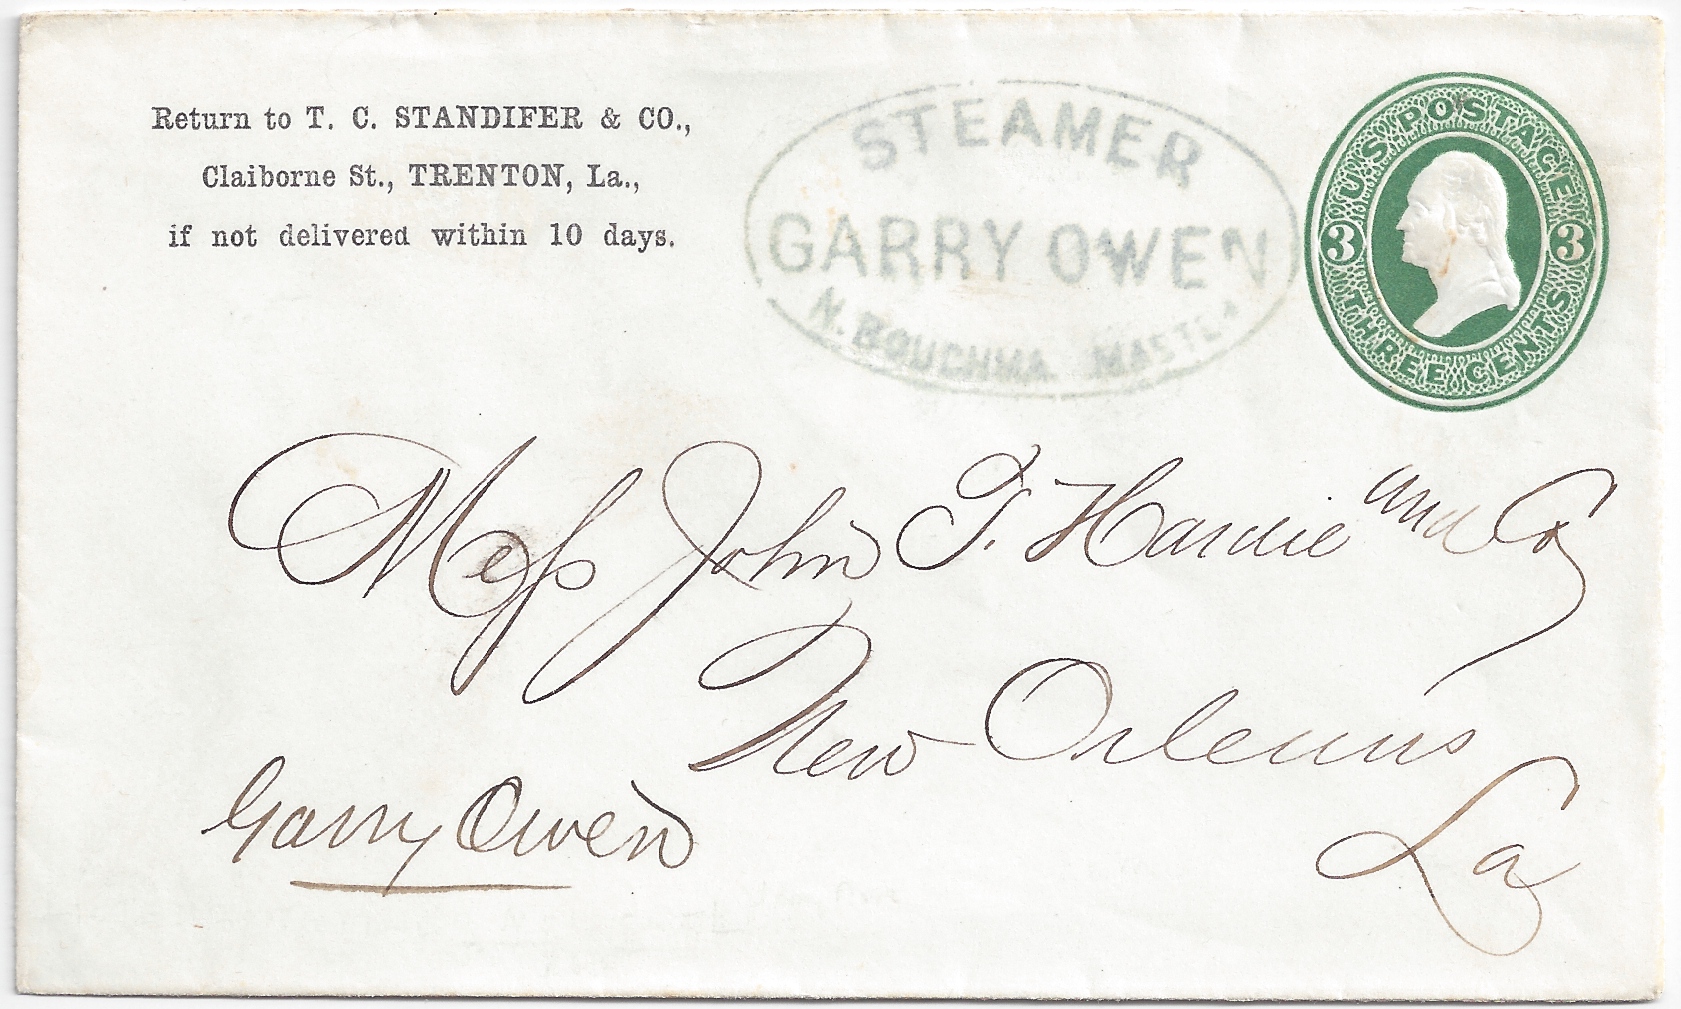 Return to T. C. STANDIFER & CO.,
Claiborne St., TRENTON, La.,
if not delivered within 10 days.
STEAMER
GARRY OWEN
N. BOUCHMA MASTE
U.S POSTAGE
3 3
THREE CENTS
Mess John T. Hardie and Co
New Orleans
La
Garry Owen